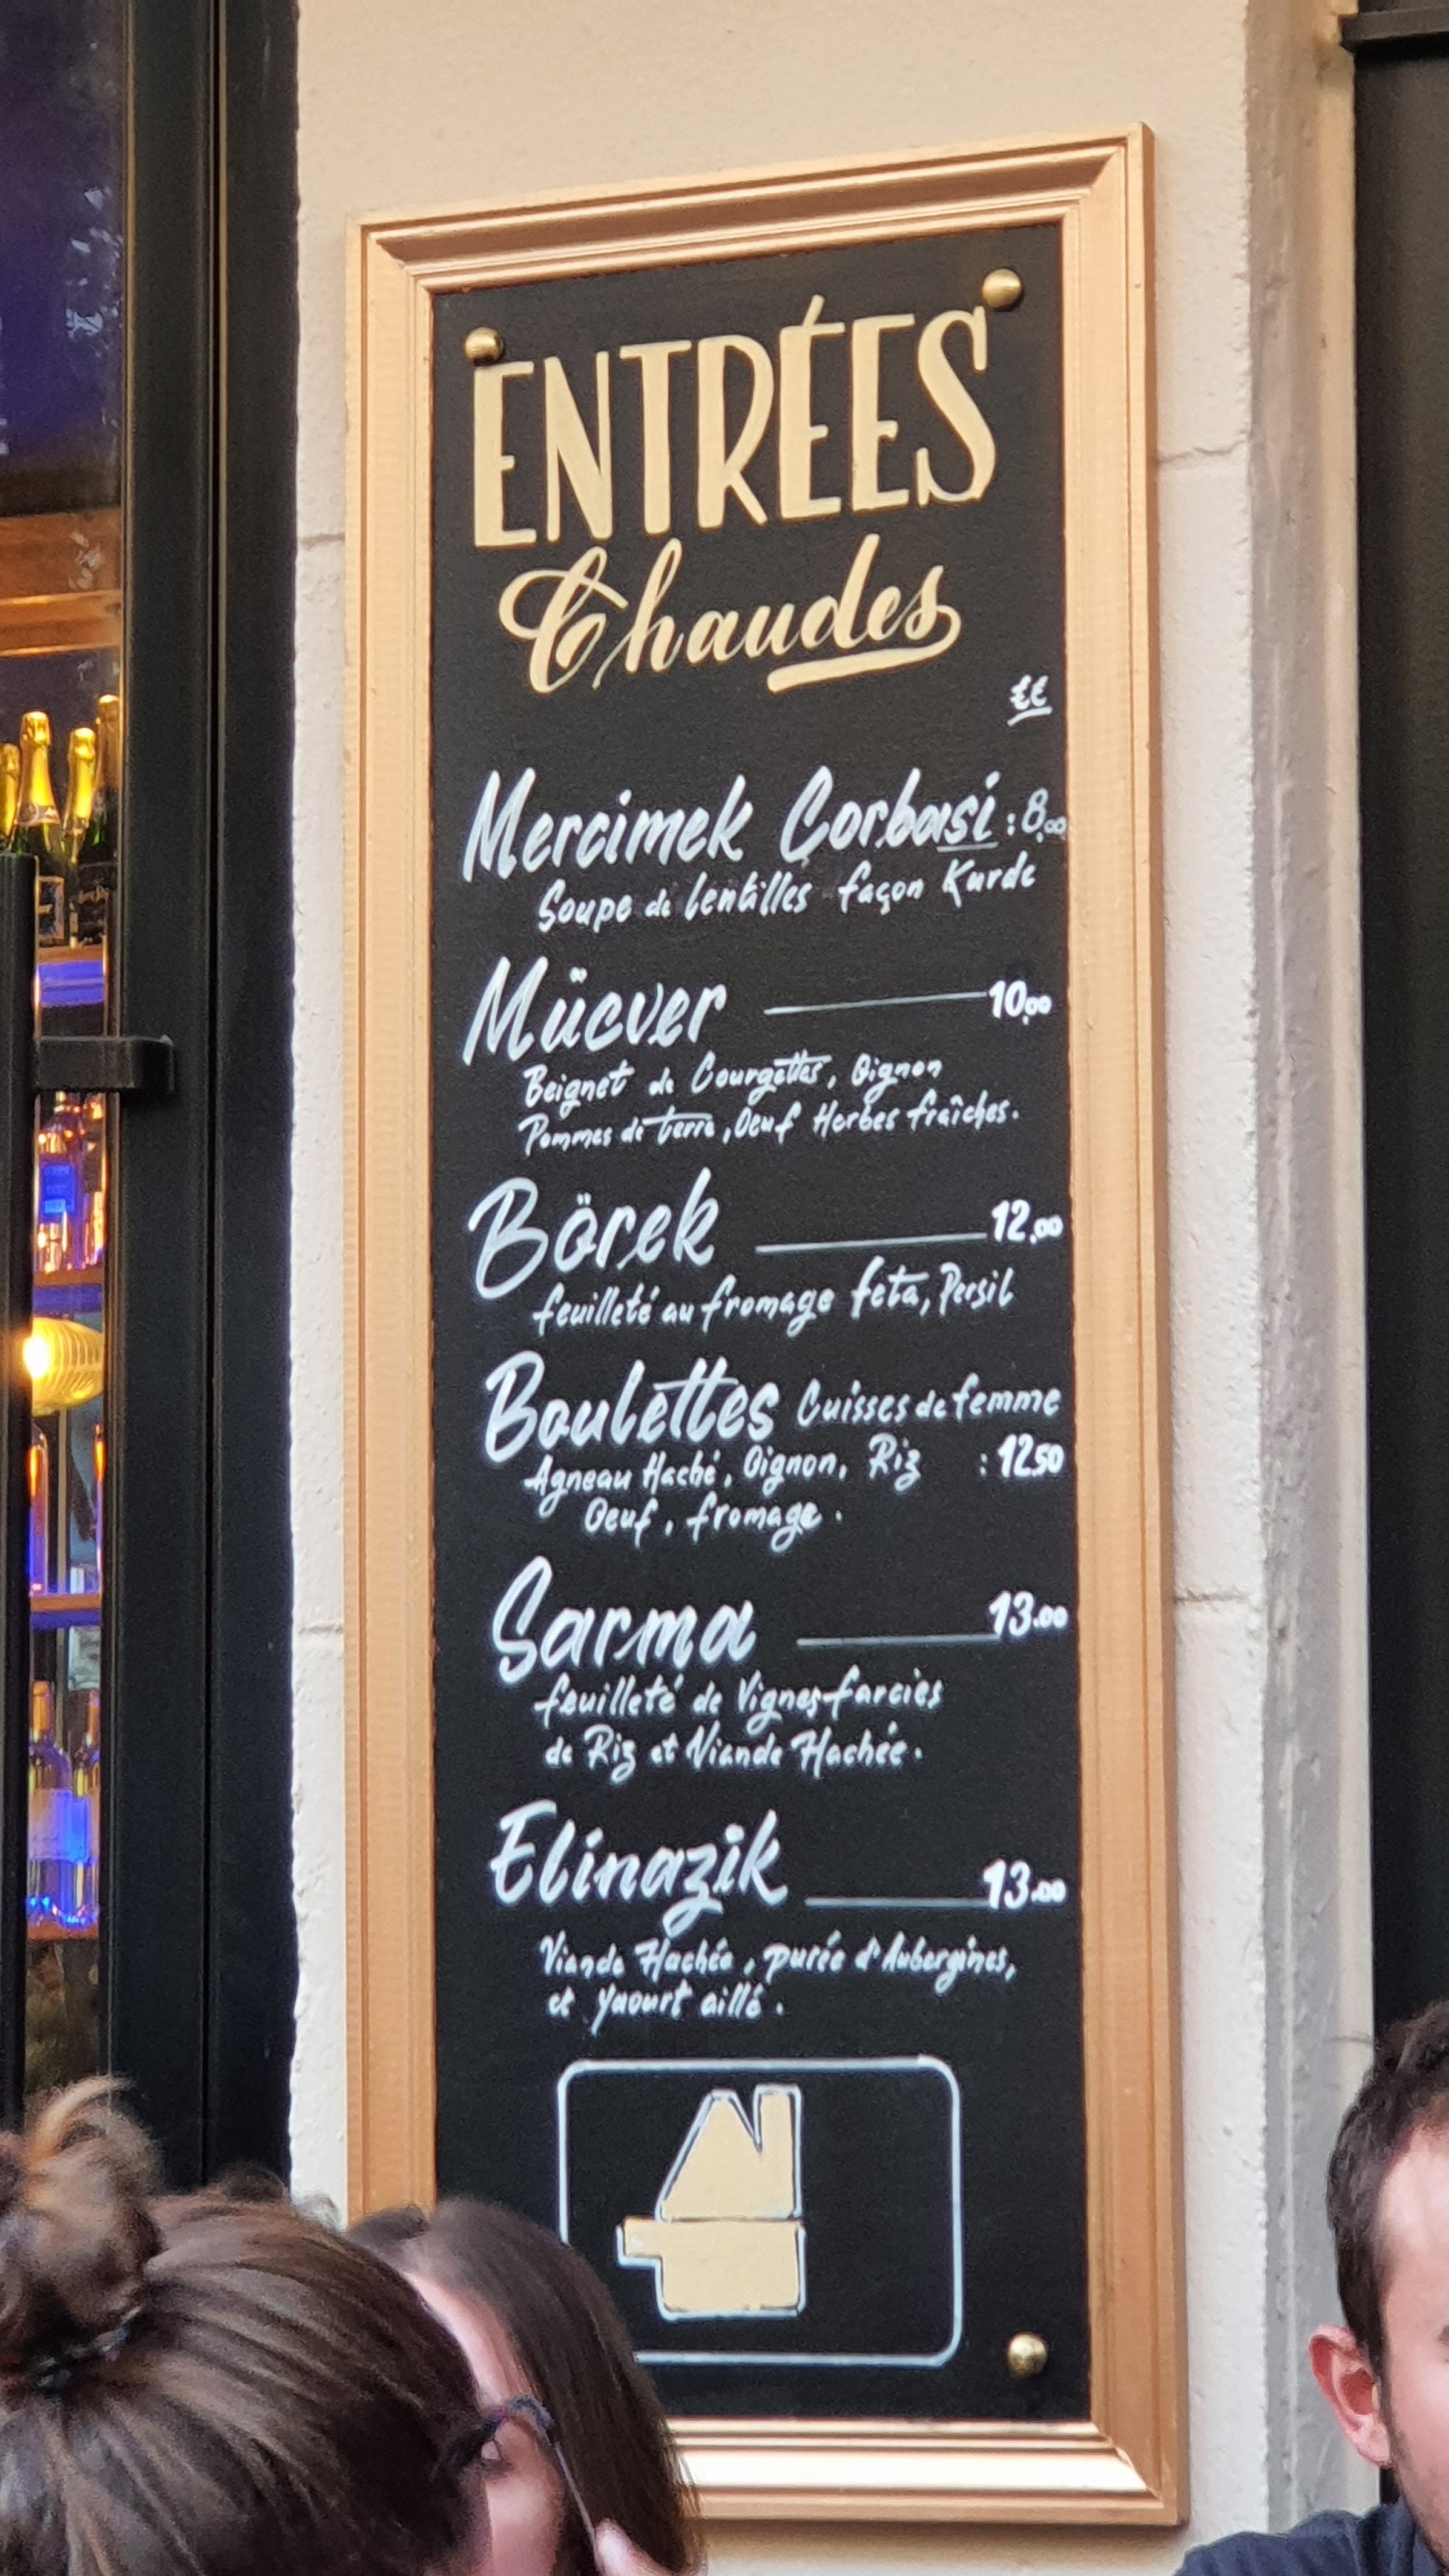 ENTRÉES
Chaudes
€€
Mercimek Çorbasi : 8,00
Soupe de lentilles façon Kurde
Mücver 10,00
Beignet de Courgettes, Oignon
Pommes de terre, Oeuf Herbes fraîches.
Börek 12,00
feuilleté au fromage feta, Persil
Boulettes Cuisses de femme
Agneau Haché, Oignon, Riz : 12.50
Oeuf, fromage.
Sarma 13.00
feuilleté de Vignes farcies
de Riz et Viande Hachée.
Elinazik 13.00
Viande Hachée, purée d'Aubergines,
et yaourt aillé.